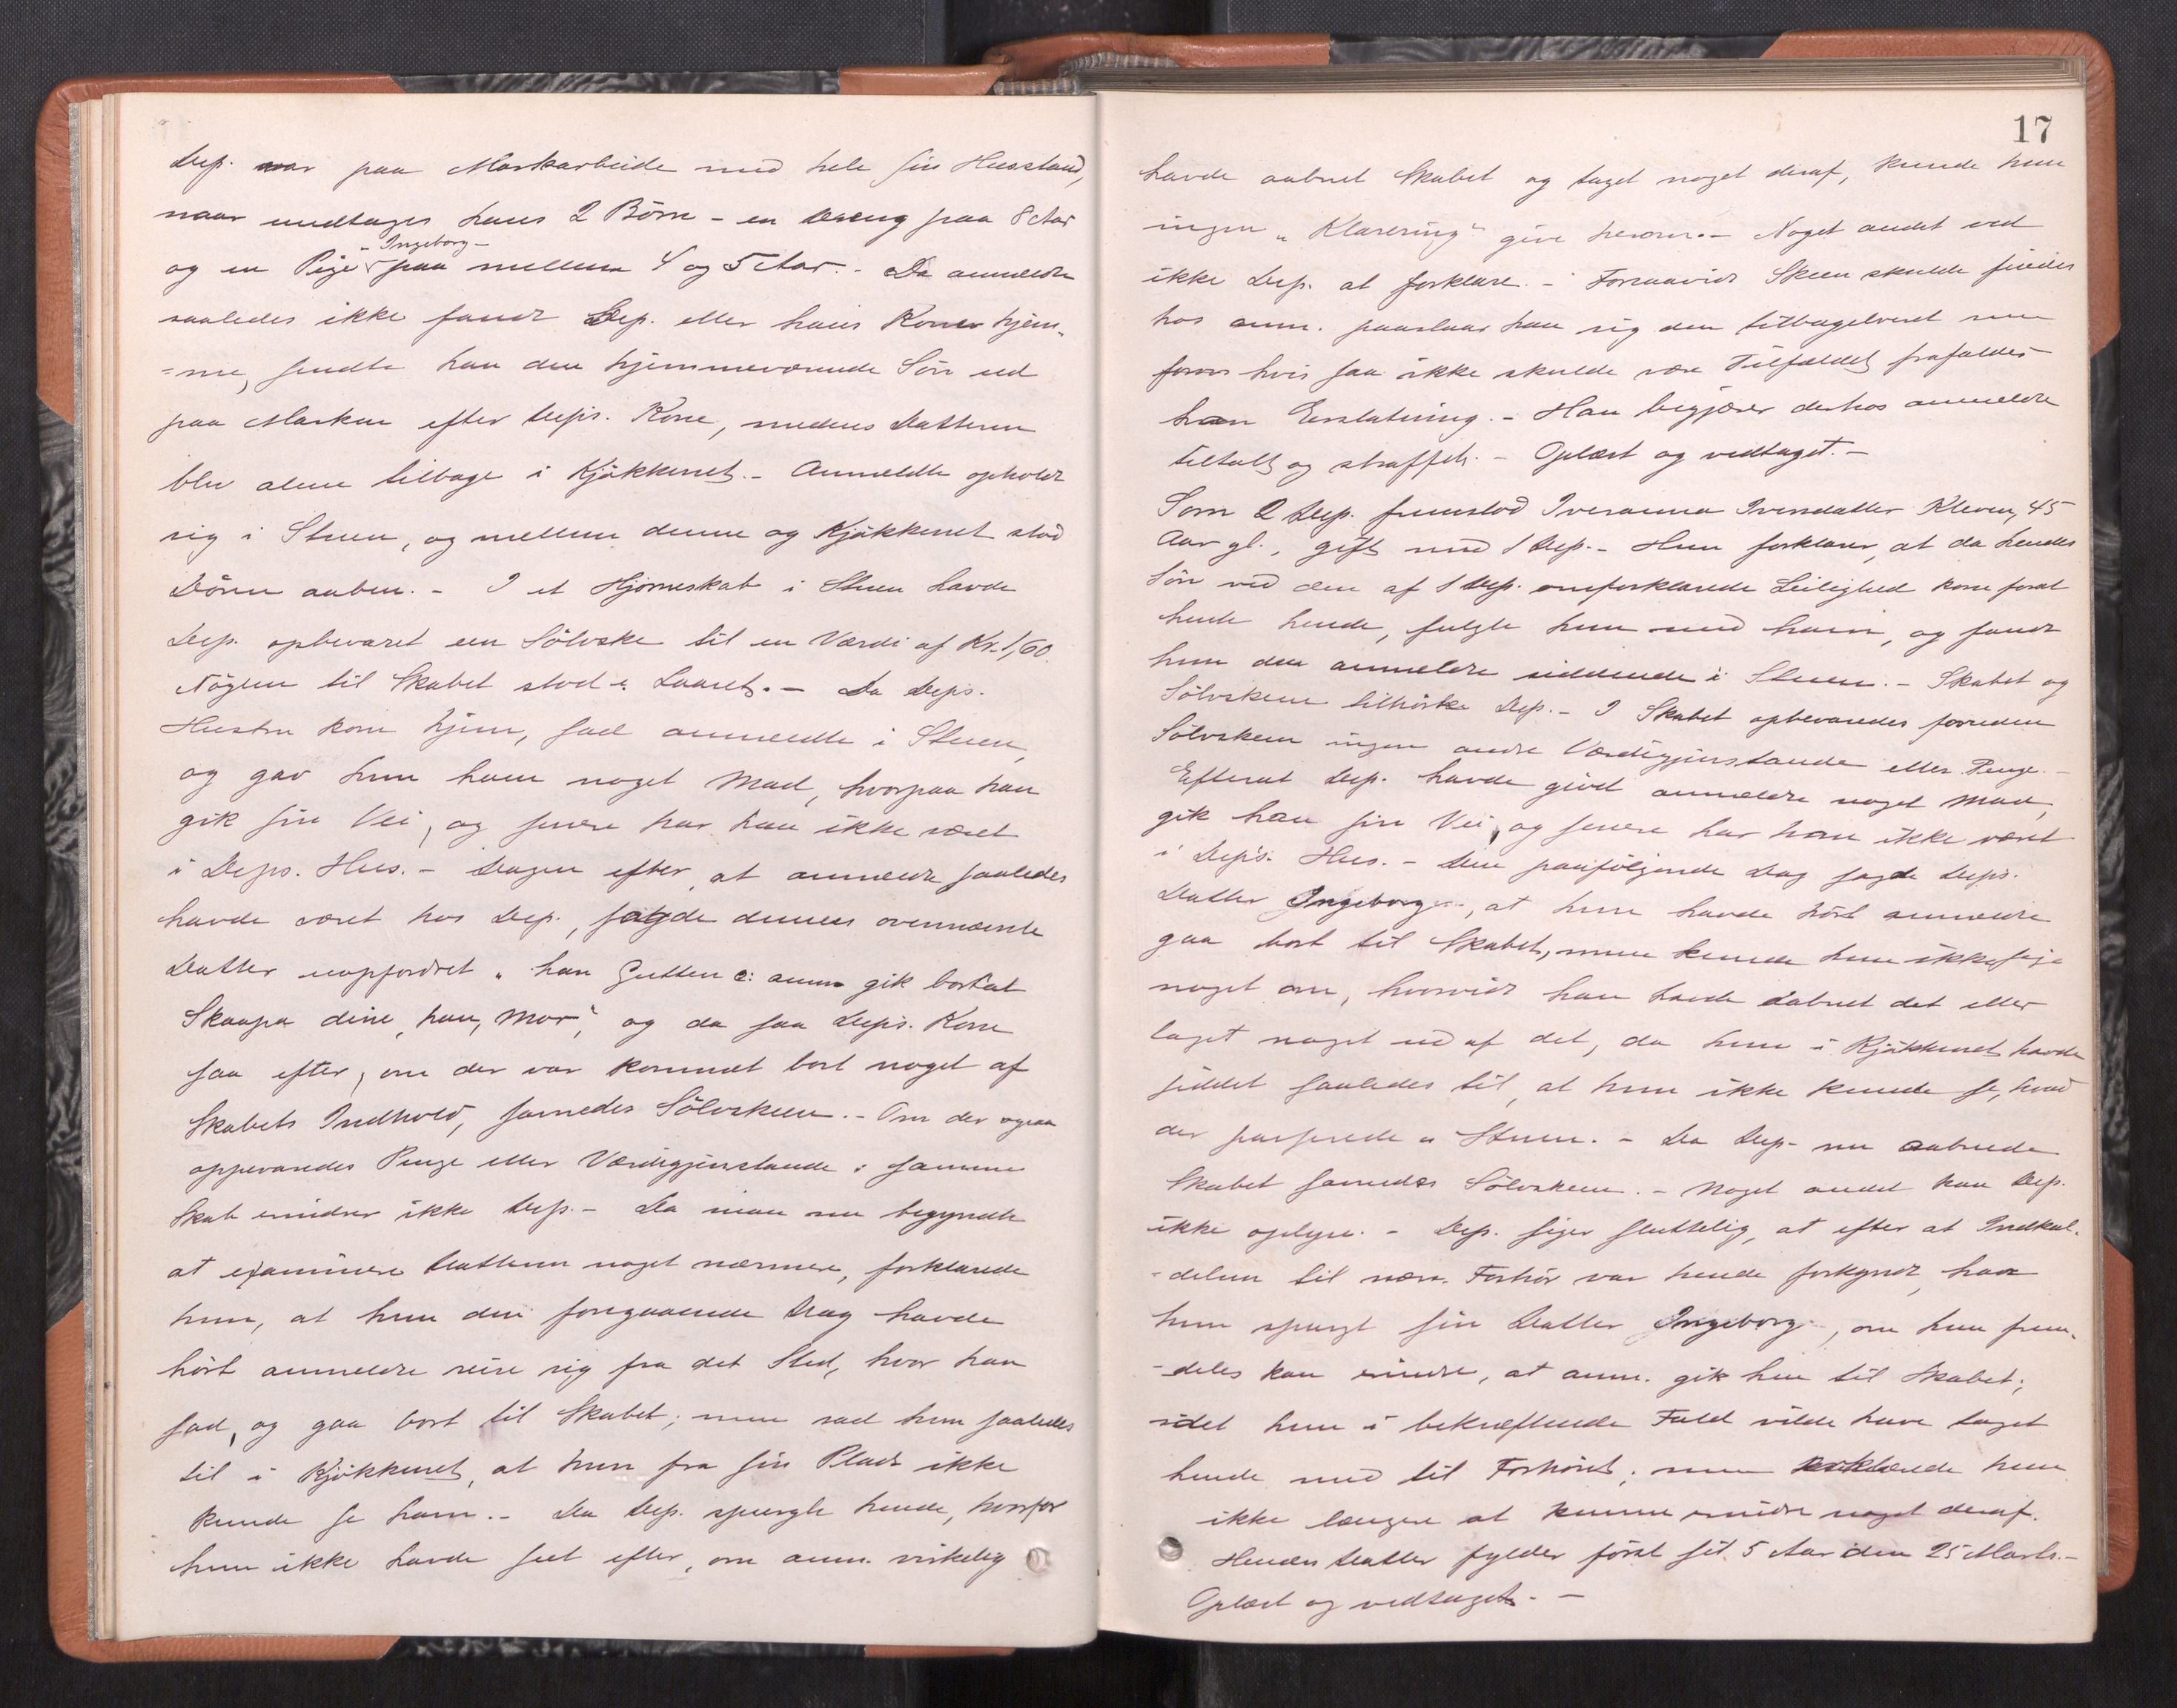 Dep. var paa Markarbeide med hele sin Husstand,
naar undtages hans 2 Börn - en Dreng paa 8 Aar
- Ingeborg -
og en Pige paa mellem 4 og 5 Aar. - Da anmeldte
saaledes ikke fandt Dep. eller hans Kone hjem-
=me, sendte han den hjemmeværende Sön ud
paa Marken efter Dep's. Kone, medens Datteren
blev alene tilbage i Kjökkenet. - Anmeldte opholdt
sig i Stuen, og mellem denne og Kjökkenet stod
Dören aaben. - I et Hjörneskab i Stuen havde
Dep. opbevaret een Sölvske til en Værdi af Kr. 1,60.
Nöglen til Skabet stod i Laaset. - Da Dep's.
Hustru kom hjem, sad anmeldte i Stuen,
og gav hun ham noget Mad, hvorpaa han
gik sin Vei, og senere har han ikke været
i Dep's. Hus. - Dagen efter, at anmeldte saaledes
havde været hos Dep., sagde dennes ovennævnte
Datter uopfordret "han Gutten ɔ: anm. gik bortat
Skaapa dine, han, Mor", og da saa Dep's. Kone
saa efter, om der var kommet bort noget af
Skabets Indhold, savnedes Sölvskeen. - Om der ogsaa
oppevaredes Penge eller Værdigjenstande i samme
Skab erindrer ikke Dep. - Da man nu begyndte
at examinere Datteren noget nærmere, forklarede
hun, at hun den foregaaende Dag havde
hört anmeldte reise sig fra det Sted, hvor han
sad, og gaa bort til Skabet; men sad hun saaledes
til i Kjökkenet, at hun fra sin Plads ikke
kunde se ham. - Da Dep. spurgte hende, hvorfor
hun ikke havde seet efter, om anm. virkelig
17
havde aabnet Skabet og taget noget deraf, kunde hun
ingen "Klarering" give herom. - Noget andet ved
ikke Dep. at forklare. - Forsaavidt Skeen skulde findes
hos anm. paastaar han sig den tilbageleveret men
hvis saa ikke skulde være Tilfældet frafaldes
han Erstatning. - Han begjærer derhos anmeldte
tiltalt og straffet. - Oplæst og vedtaget. -
Som 2 Dep. fremstod Iveranna Iversdatter Kleven, 45
Aar gl., gift med 1 Dep. - Hun forklarer, at da hendes
Sön ved den af 1 Dep. omforklarede Leilighed kom forat
hente hende, fulgte hun med ham, og fandt
hun den anmeldte siddende i Stuen. - Skabet og
Sölvskeen tilhörte Dep. - I Skabet opbevaredes foruden
Sölvskeen ingen andre Værdigjenstande eller Penge. -
Efterat Dep. havde givet anmeldte noget Mad,
gik han sin Vei, og senere har han ikke været
i Dep's. Hus. - Den paafölgende Dag sagde Dep's.
Datter Ingeborg, at hun havde hört anmeldte
gaa bort til Skabet, men kunde hun ikke sige
noget om, hvorvidt han havde aabnet det eller
taget noget ud af det, da hun i Kjökkenet havde
siddet saaledes til, at hun ikke kunde se, hvad
der passerede i Stuen. - Da Dep. nu aabnede
Skabet savnedes Sölvskeen. - Noget andet kan Dep.
ikke oplyse. - Dep. siger sluttelig, at efter at Indkal-
-delsen til nærv. Forhör var hende forkyndt, har
hun spurgt sin Datter Ingeborg, om hun frem-
-deles kan erindre, at anm. gik hen til Skabet;
idet hun i bekræftende Fald vilde have taget
hende med til Forhöret; men erklærede hun
ikke længere at kunne erindre noget deraf.
Hendes Datter fylder först sit 5 Aar den 25 Marts. -
Oplæst og vedtaget. -